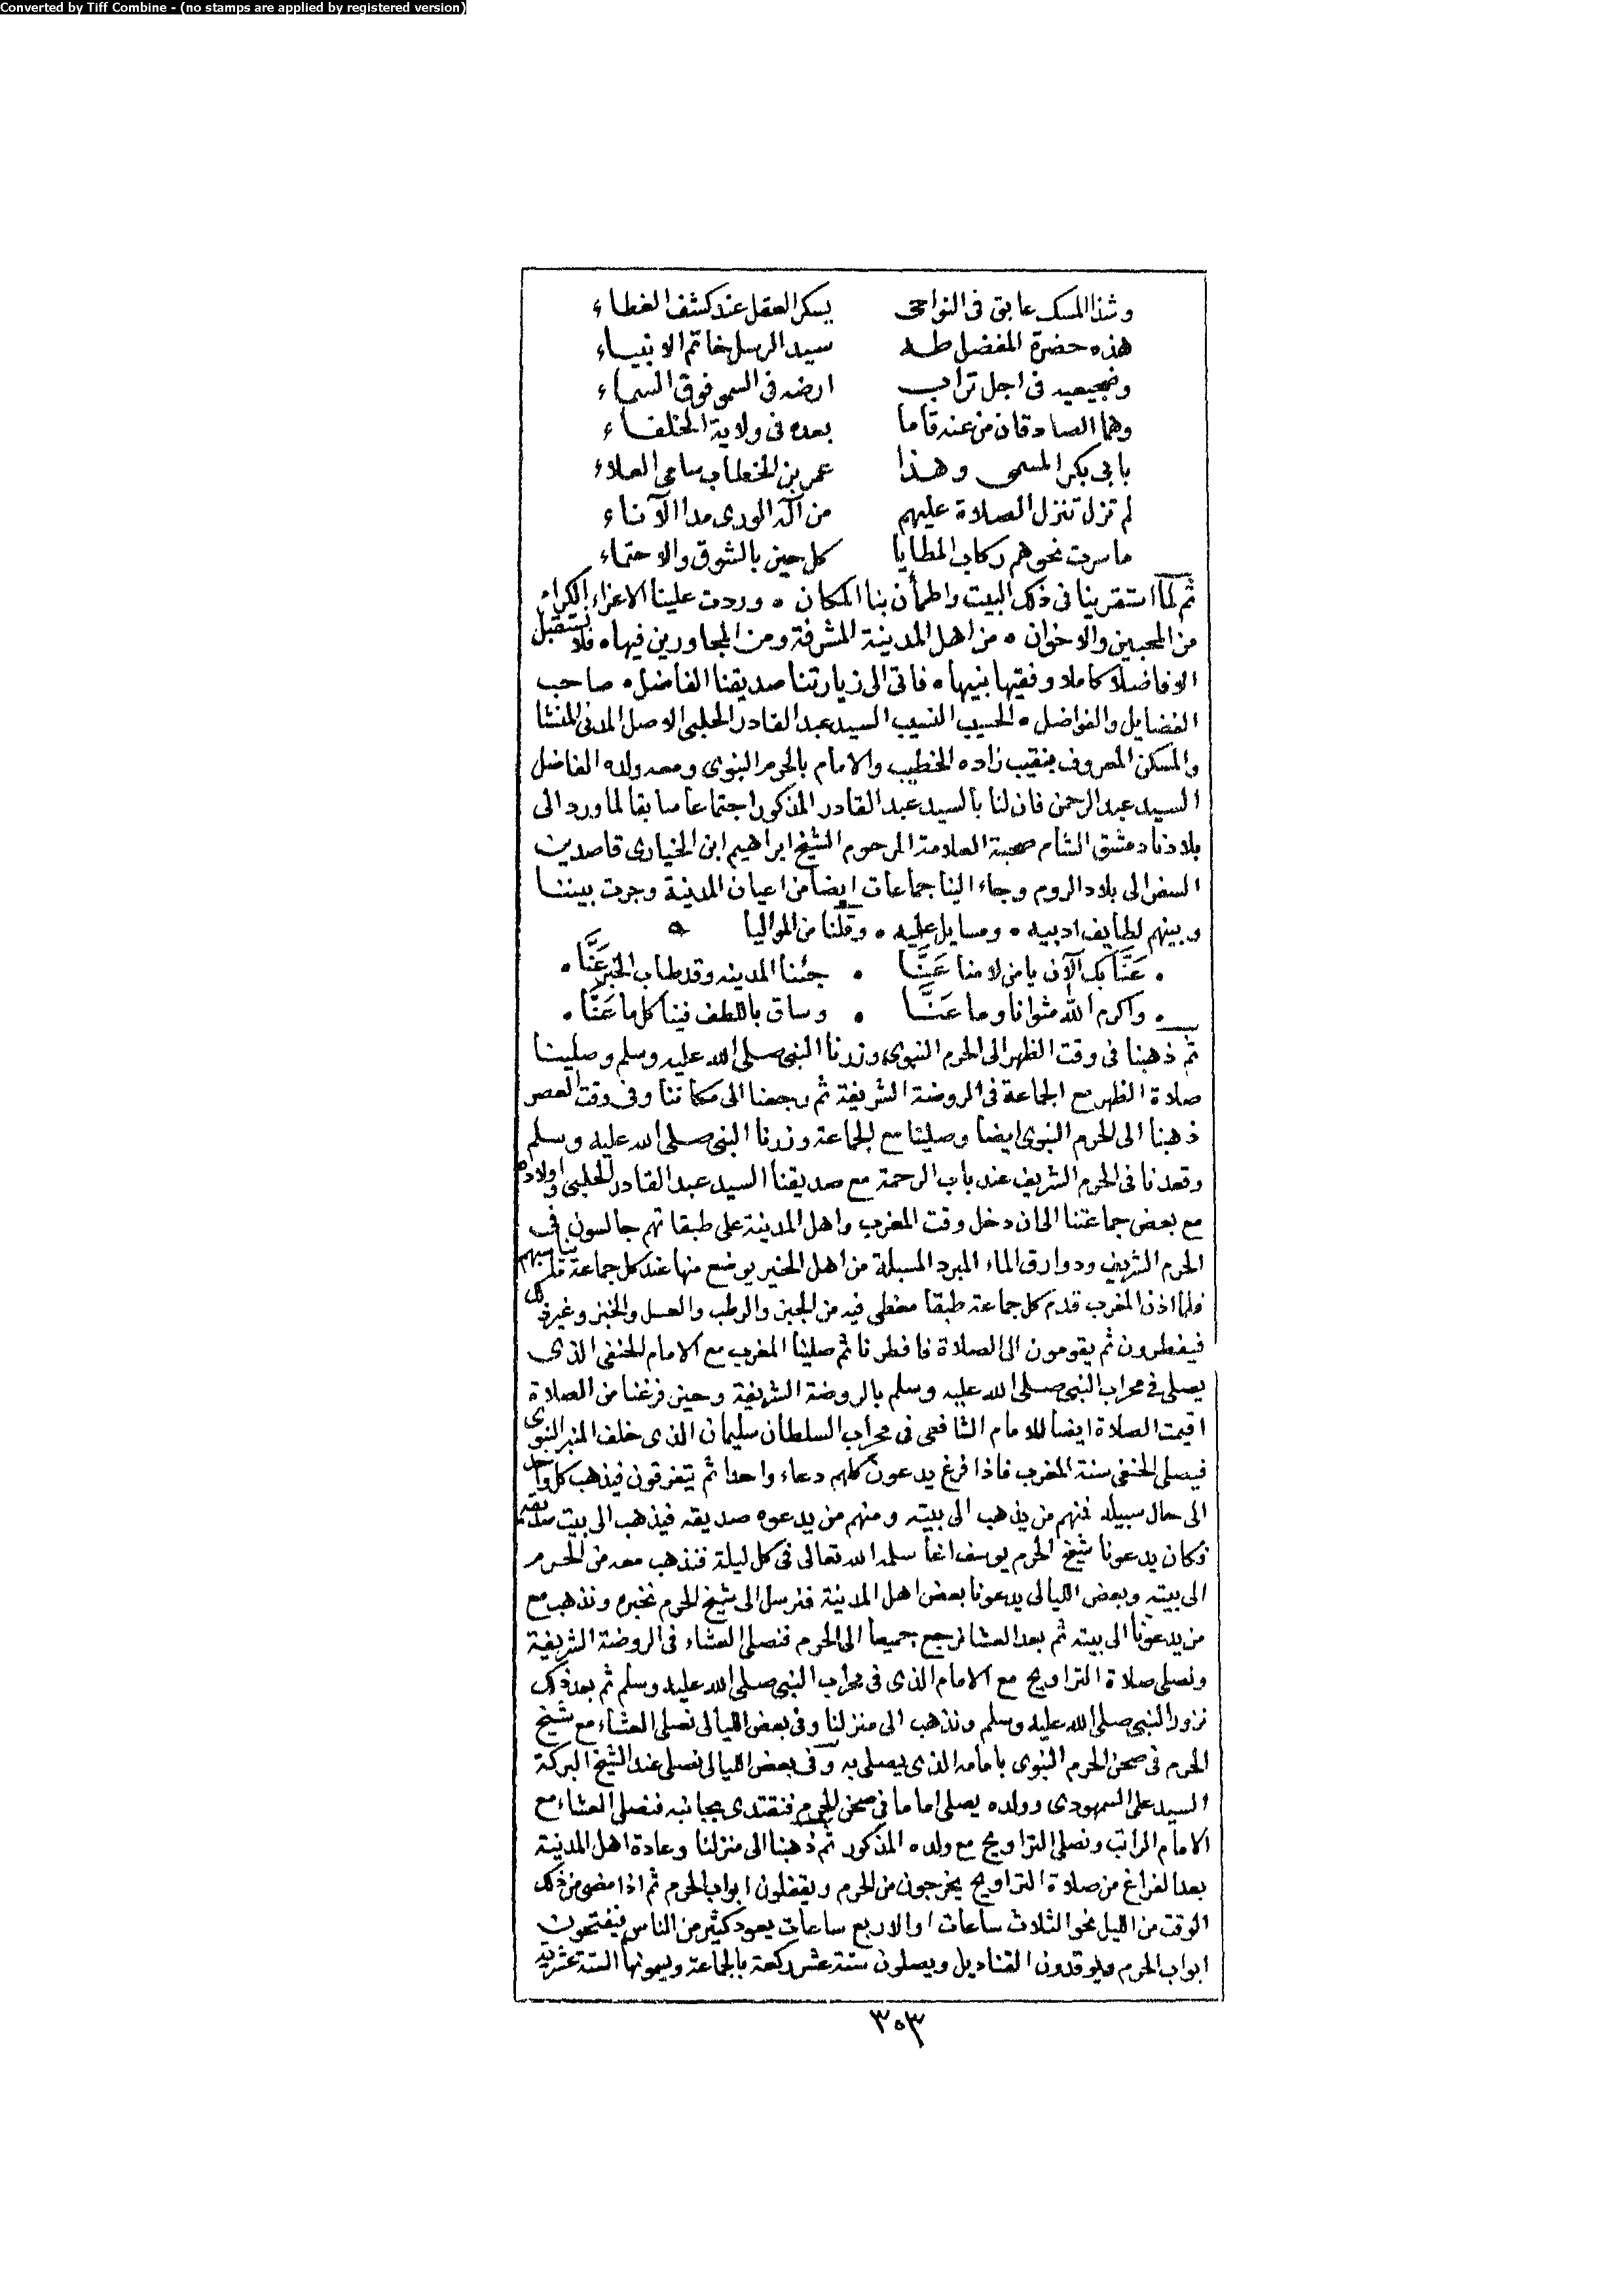 Converted by Tiff Combine - (no stamps are applied by registered version)
وشذا المسك عابق فى النواحى يسكر العقل عند كشف الغطاء
هذه حضرة المفضل طه سيد الرسل خاتم الانبياء
وضجيعيه فى اجل تراب ارضه فى السمو فوق السماء
وهما الصادقان من عند قاما بعده فى ولاية الخلفاء
بابى بكر المسمى وهذا عمر بن الخطاب سامى العلاء
لم تزل تنزل الصلاة عليهم من اله الورى مدا الآناء
ما سرت نحوهم ركاب المطايا كل حين بالشوق والاحتماء
ثم لما استقر بنا فى ذلك البيت واطمأن بنا المكان ٥ وردت علينا الاعزاء الكرام
من المحبين والاخوان ٥ من اهل المدينة المشرفة ومن المجاورين فيها ٥ فلا نستقبل
الا فاضلا كاملا وفقيها نبيها ٥ فاتى الى زيارتنا صديقنا الفاضل ٥ صاحب
الفضايل والفواضل ٥ الحسيب النسيب السيد عبد القادر الحلبى الاصل المدنى المنشا
والمسكن المعروف بنقيب زاده الخطيب والامام بالحرم النبوى ومعه ولده الفاضل
السيد عبد الرحمن فان لنا بالسيد عبد القادر المذكور اجتماعا سابقا لما ورد الى
بلادنا دمشق الشام صحبة العلامة المرحوم الشيخ ابراهيم ابن الخيارى قاصدين
السفر الى بلاد الروم وجاء الينا جماعات ايضا من اعيان المدينة وجرت بيننا
وبينهم لطايف ادبيه ٥ ومسايل علميه ٥ وقلنا من المواليا ٥
• عَنَّا بك الآن يا من لامنا عَنَّا • جئنا المدينه وقد طاب الخبر عَنَّا •
• واكرم الله مثوانا وما عَنَّا • وساق باللطف فينا كل ما عَنَّا •
ثم ذهبنا فى وقت الظهر الى الحرم النبوى وزرنا النبى صلى الله عليه وسلم وصلينا
صلاة الظهر مع الجماعة فى الروضة الشريفة ثم رجعنا الى مكاننا وفى وقت العصر
ذهبنا الى الحرم النبوى ايضا وصلينا مع الجماعة وزرنا النبى صلى الله عليه وسلم
وقعدنا فى الحرم الشريف عند باب الرحمة مع صديقنا السيد عبد القادر الحلبى واولاده
مع بعض جماعتنا الى ان دخل وقت المغرب واهل المدينة على طبقاتهم جالسون فى
الحرم الشريف ودوارق الماء المبرد المسبلة من اهل الخير يوضع منها عند كل جماعة قدر ما يناسبهم
فلما اذن المغرب قدم كل جماعة طبقا مغطى فيه من الجبن والرطب والعسل والخبز وغير ذلك
فيفطرون ثم يقومون الى الصلاة فافطرنا ثم صلينا المغرب مع الامام الحنفى الذى
يصلى فى محراب النبى صلى الله عليه وسلم بالروضة الشريفة وحين فرغنا من الصلاة
اقيمت الصلاة ايضا للامام الشافعى فى محراب السلطان سليمان الذى خلف المنبر النبوى
فيصلى الحنفى سنة المغرب فاذا فرغ يدعون كلهم دعاء واحدا ثم يتفرقون فيذهب كل واحد
الى حال سبيله فمنهم من يذهب الى بيته ومنهم من يدعوه صديقه فيذهب الى بيت صديقه
فكان يدعونا شيخ الحرم يوسف اغا سلمه الله تعالى فى كل ليلة فنذهب معه من الحرم
الى بيته وبعض الليالى يدعونا بعض اهل المدينة فنرسل الى شيخ الحرم نخبره ونذهب مع
من يدعونا الى بيته ثم بعد العشا نرجع جميعا الى الحرم فنصلى العشاء فى الروضة الشريفة
ونصلى صلاة التراويح مع الامام الذى فى محراب النبى صلى الله عليه وسلم ثم بعد ذلك
نزور النبى صلى الله عليه وسلم ونذهب الى منزلنا وفى بعض الليالى نصلى العشاء مع شيخ
الحرم فى صحن الحرم النبوى بامامه الذى يصلى به وفى بعض الليالى نصلى عند الشيخ البركة
السيد على السمهودى وولده يصلى اماما فى صحن الحرم فنقتدى بجانبه فنصلى العشاء مع
الامام الراتب ونصلى التراويح مع ولده المذكور ثم ذهبنا الى منزلنا وعادة اهل المدينة
بعد الفراغ من صلاة التراويح يخرجون من الحرم ويقفلون ابواب الحرم ثم اذا مضى من ذلك
الوقت من الليل نحو الثلاث ساعات او الاربع ساعات يعود كثير من الناس فيفتحون
ابواب الحرم ويوقدون القناديل ويصلون ستة عشر ركعة بالجماعة ويسمونها الستة عشرية
٣٥٣